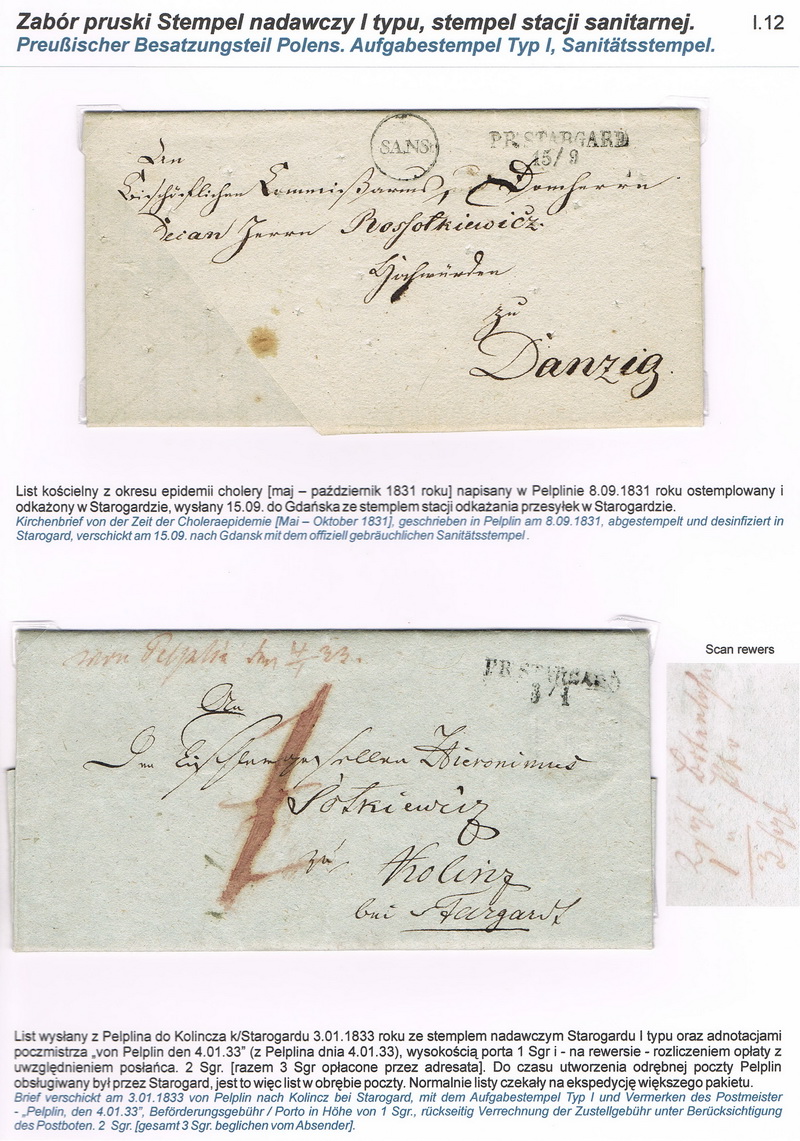 Zabór pruski Stempel nadawczy I typu, stempel stacji sanitarnej. I.12
Preußischer Besatzungsteil Polens. Aufgabestempel Typ I, Sanitätsstempel.
SANS
PR. STARGARD
15/9
An
Bischöflichen Commissarius, Domherrn
Decan Herrn Rossolkiewicz
Hochwürden
zu
Danzig.
List kościelny z okresu epidemii cholery [maj – październik 1831 roku] napisany w Pelplinie 8.09.1831 roku ostemplowany i
odkażony w Starogardzie, wysłany 15.09. do Gdańska ze stemplem stacji odkażania przesyłek w Starogardzie.
Kirchenbrief von der Zeit der Choleraepidemie [Mai – Oktober 1831], geschrieben in Pelplin am 8.09.1831, abgestempelt und desinfiziert in
Starogard, verschickt am 15.09. nach Gdansk mit dem offiziell gebräuchlichen Sanitätsstempel.
Scan rewers
von Pelplin den 4/1 33.
PR. STARGARD
3/1
An
Den Tischlergesellen Hieronimus
Sotkiewicz
zu Kolinz
bei Stargardt
List wysłany z Pelplina do Kolincza k/Starogardu 3.01.1833 roku ze stemplem nadawczym Starogardu I typu oraz adnotacjami
poczmistrza „von Pelplin den 4.01.33” (z Pelplina dnia 4.01.33), wysokością porta 1 Sgr i - na rewersie - rozliczeniem opłaty z
uwzględnieniem posłańca. 2 Sgr. [razem 3 Sgr opłacone przez adresata]. Do czasu utworzenia odrębnej poczty Pelplin
obsługiwany był przez Starogard, jest to więc list w obrębie poczty. Normalnie listy czekały na ekspedycję większego pakietu.
Brief verschickt am 3.01.1833 von Pelplin nach Kolincz bei Starogard, mit dem Aufgabestempel Typ I und Vermerken des Postmeister
- „Pelplin, den 4.01.33”, Beförderungsgebühr / Porto in Höhe von 1 Sgr., rückseitig Verrechnung der Zustellgebühr unter Berücksichtigung
des Postboten. 2 Sgr. [gesamt 3 Sgr. beglichen vom Absender].